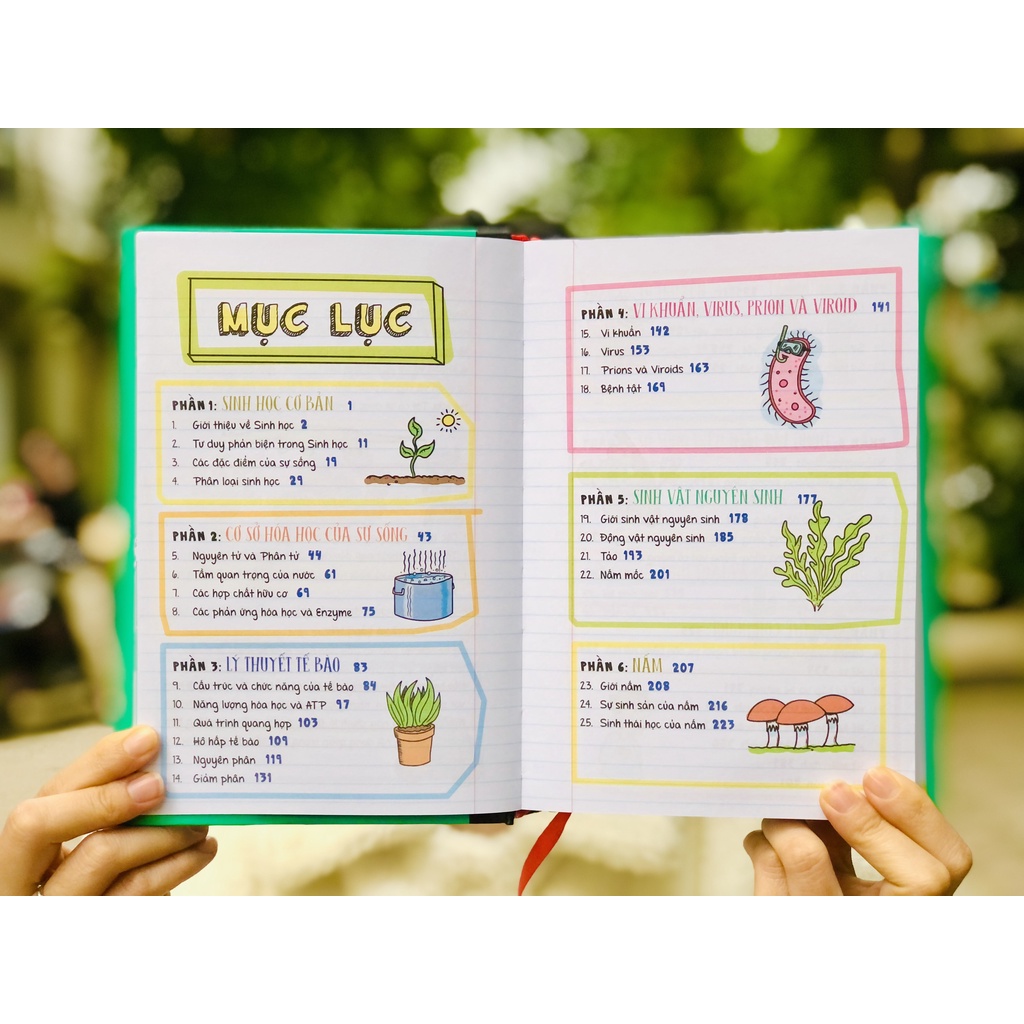 MỤC LỤC
PHẦN 1: SINH HỌC CƠ BẢN 1
1. Giới thiệu về Sinh học 2
2. Tư duy phản biện trong Sinh học 11
3. Các đặc điểm của sự sống 19
4. Phân loại sinh học 29
PHẦN 2: CƠ SỞ HÓA HỌC CỦA SỰ SỐNG 43
5. Nguyên tử và Phân tử 44
6. Tầm quan trọng của nước 61
7. Các hợp chất hữu cơ 69
8. Các phản ứng hóa học và Enzyme 75
PHẦN 3: LÝ THUYẾT TẾ BÀO 83
9. Cấu trúc và chức năng của tế bào 84
10. Năng lượng hóa học và ATP 97
11. Quá trình quang hợp 103
12. Hô hấp tế bào 109
13. Nguyên phân 119
14. Giảm phân 131
PHẦN 4: VI KHUẨN, VIRUS, PRION VÀ VIROID 141
15. Vi khuẩn 142
16. Virus 153
17. Prions và Viroids 163
18. Bệnh tật 169
PHẦN 5: SINH VẬT NGUYÊN SINH 177
19. Giới sinh vật nguyên sinh 178
20. Động vật nguyên sinh 185
21. Tảo 193
22. Nấm mốc 201
PHẦN 6: NẤM 207
23. Giới nấm 208
24. Sự sinh sản của nấm 216
25. Sinh thái học của nấm 223